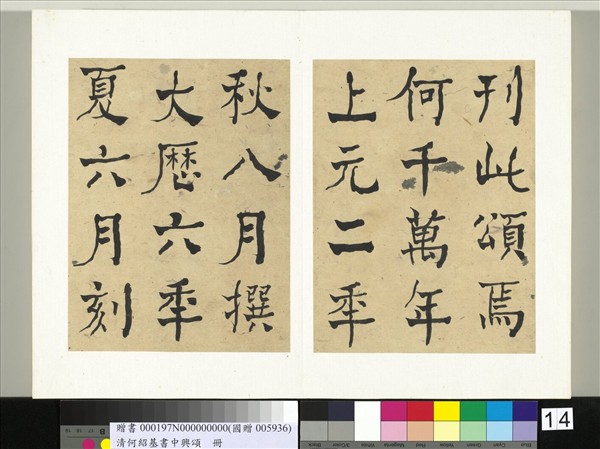 刊此頌焉
何千萬年
上元二年
秋八月撰
大歷六年
夏六月刻
贈書 000197N000000000(國贈 005936)
清何紹基書中興頌 冊
14